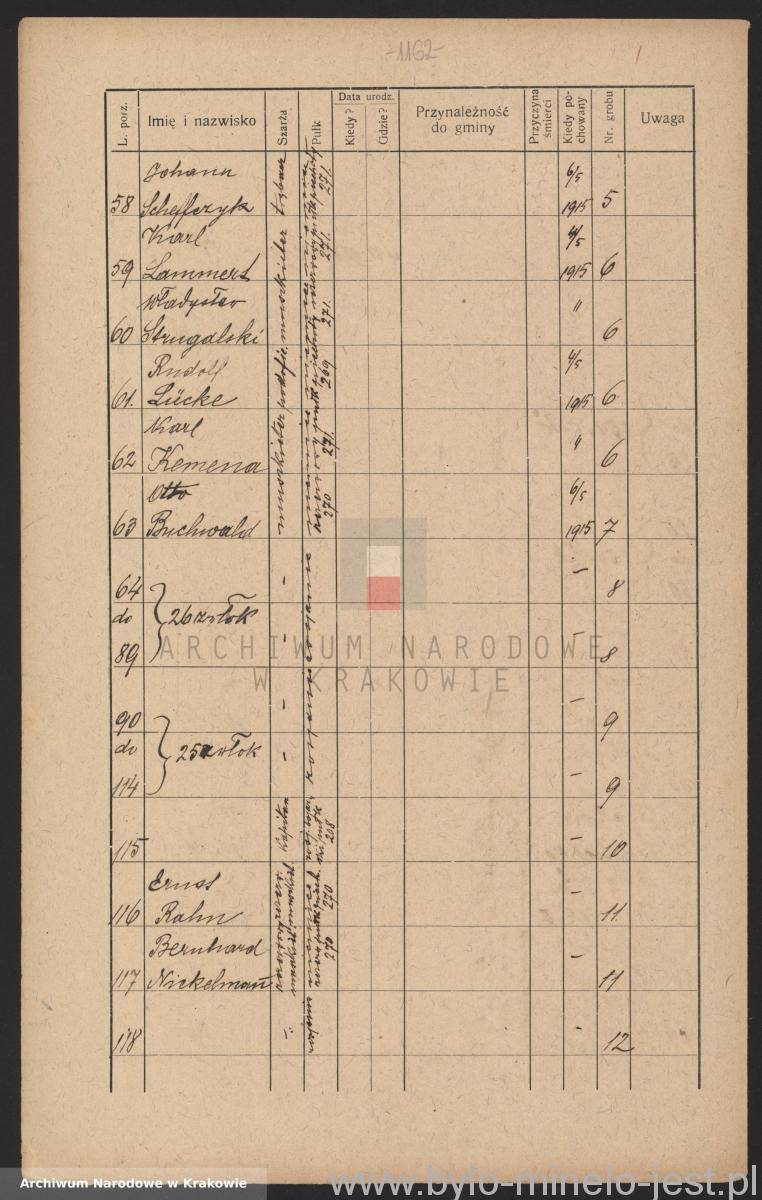 -1162-
L. porz.
Imię i nazwisko
Szarża
Pułk
Data urodz.
Kiedy?
Gdzie?
Przynależność
do gminy
Przyczyna
śmierci
Kiedy po-
chowany
Nr. grobu
Uwaga
Johann 6/5
58 Scheffczyk 271. 1915 5
Karl 4/5
59 Lammert 271. 1915 6
Władysław "
60 Strugalski 271. 6
Rudolf 4/5
61. Lücke 269 1915 6
Karl "
62 Kemena 271. 6
Otto 6/5
63 Buchwald 270 1915 7
64 - - 8
do 26 zwłok
89 - - 8
90 - - 9
do 25 zwłok
114 - - 9
115 Kapitan 208 - 10
Ernst -
116 Rahn 270 11
Bernhard -
117 Nickelmann 270 11
118 - - 12
ARCHIWUM NARODOWE
W KRAKOWIE
Archiwum Narodowe w Krakowie
www.bylo-minelo-jest.pl